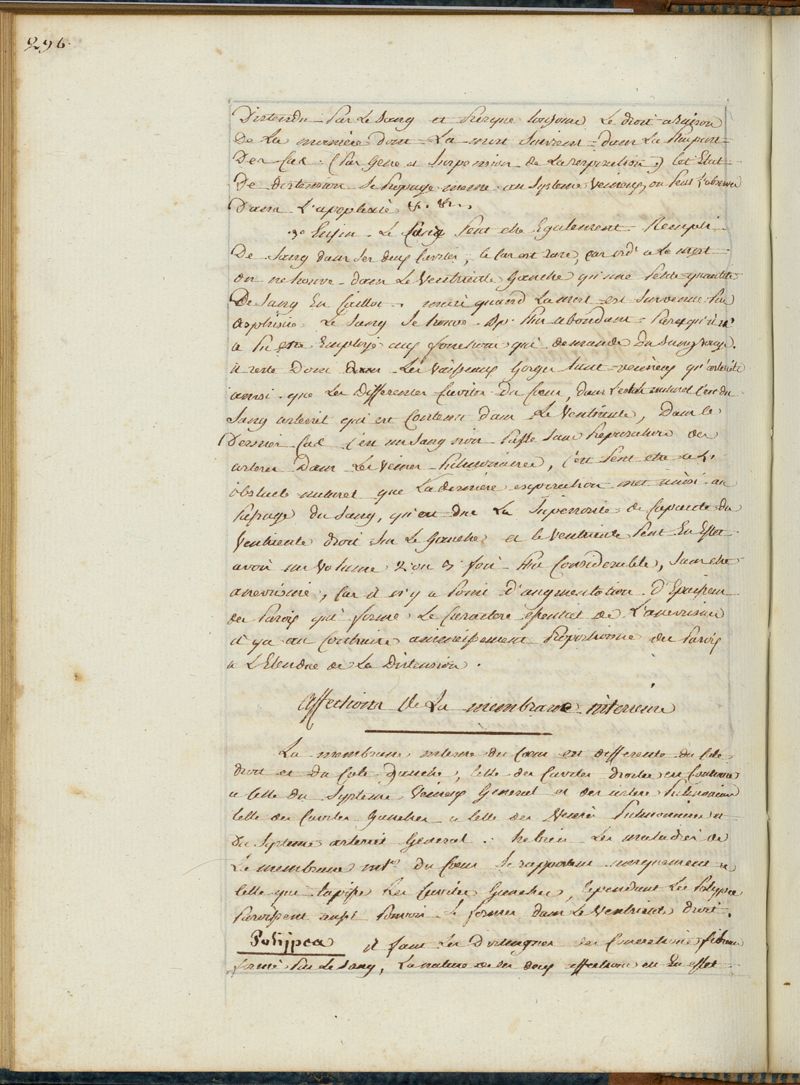 296.
Distendu par le Sang et presque toujours le droit a raison
De la manière dont la mort survient dans la plupart
Des cas. (par gene et suspension de la respiration.) Cet Etat
De distension se propage meme au systeme veineux, on peut l'observer
Dans l'apoplexie &. &.
3° Enfin le peut etre Egalement Rempli
De Sang dans ses deux Cavités, le cas est rare, car ord. a la mort
on ne trouve dans le Ventricule Gauche qu'une petite quantité
De Sang En Caillot. mais quand la mort est survenue par
asphixie le Sang se trouve plus abondant parcequ'il n'
a pu etre Employé aux fonctions qui demande du Sang rouge.
il reste donc dans les Vaisseaux Gorgés tant veineux qu'arteriels
ainsi que les differentes Cavités du Cœur, dans l'etat naturel c'est du
Sang arteriel qui est Contenu dans le Ventricule, Dans le
Dernier Cas c'est un Sang noir passé sans preparation des
arteres dans les Veines pulmonaires, c'est peut etre a l'
obstacle naturel que la derniere expiration met ainsi au
passage du Sang, qu'est due la superiorité de Capacité du
Ventricule droit sur le Gauche et le Ventricule peut En Effet
avoir un Volume 2 ou 3 fois plus Considerable, sans etre
anevrismé, car il n'y a point d'augmentation d'Epaisseur
des parois qui forme le Caractere essentiel de l'anevrisme
il y a au Contraire amincissement proportionné des parois
a l'Etendue de la Distension.
Affections de la membrane interieure
La membrane interne du Cœur est differente du Coté
droit et du Coté Gauche, celle des Cavités droites est Continue
a celle du Systeme Veineux General et des arteres Pulmonaires
celle des Cavités Gauches a celle des Veines Pulmonaires et
du Systeme arteriel General. he bien les maladies de
la membrane int.e du Cœur se rapportent uniquement a
celle qui tapisse les Cavités Gauches, cependant les Polypes
Paroissent aussi Pouvoir se former dans le Ventricule droit.
Polypes il faut les distinguer des Concretions fibrines
formé par le Sang, La nature de ces deux affections est En effet